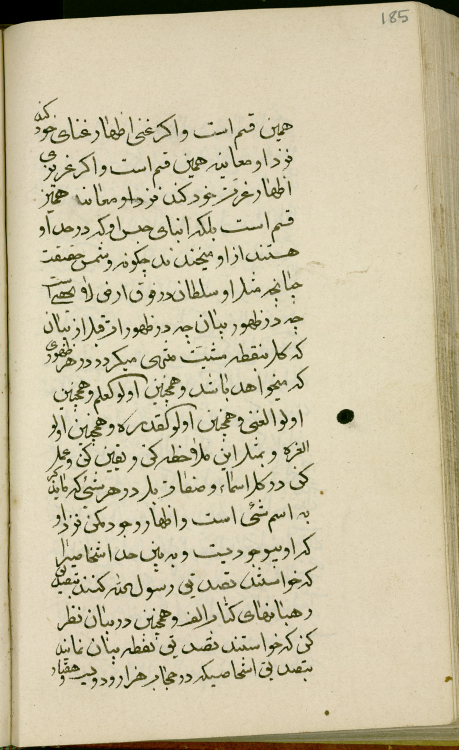 185
همین قسم است و اکر غنی اظهار غنای خود کند
نزد او معاینه همین قسم است و اکر عزیزی
اظهار عزت خود کند نزد او معاینه همین
قسم است بلکه ابنای جنس او که در حد او
هستند از او میخندند چکونه و شمس حقیقت
چنانچه مثل او سلطان در فوق ارض لا یحصی است
چه در ظهور بیان چه در ظهور از قبل از بیان
که کل بنقطه مشیت منتهی میکردد در هر ظهوری
که میخواهد باشد و همچنین اولو العلم و همچنین
اولو الغنی و همچنین اولو القدره و همچنین اولو
العزه و بمثل این ملاحظه کن و یقین کن و عمل
کن در کل اسماء و صفات بل در هر شئ که
به اسم شئ است و اظهار وجود مکن نزد او
که او بوجودیت و به بین حد اشخاصیرا
که خواستند تصدیق رسول الله کنند بتصدیق
رهبانهای کتاب الف و همچنین در بیان نظر
کن که خواستند تصدیق نقطه بیان نمایند
بتصدیق اشخاصیکه در هزار و دویست و هفتاد